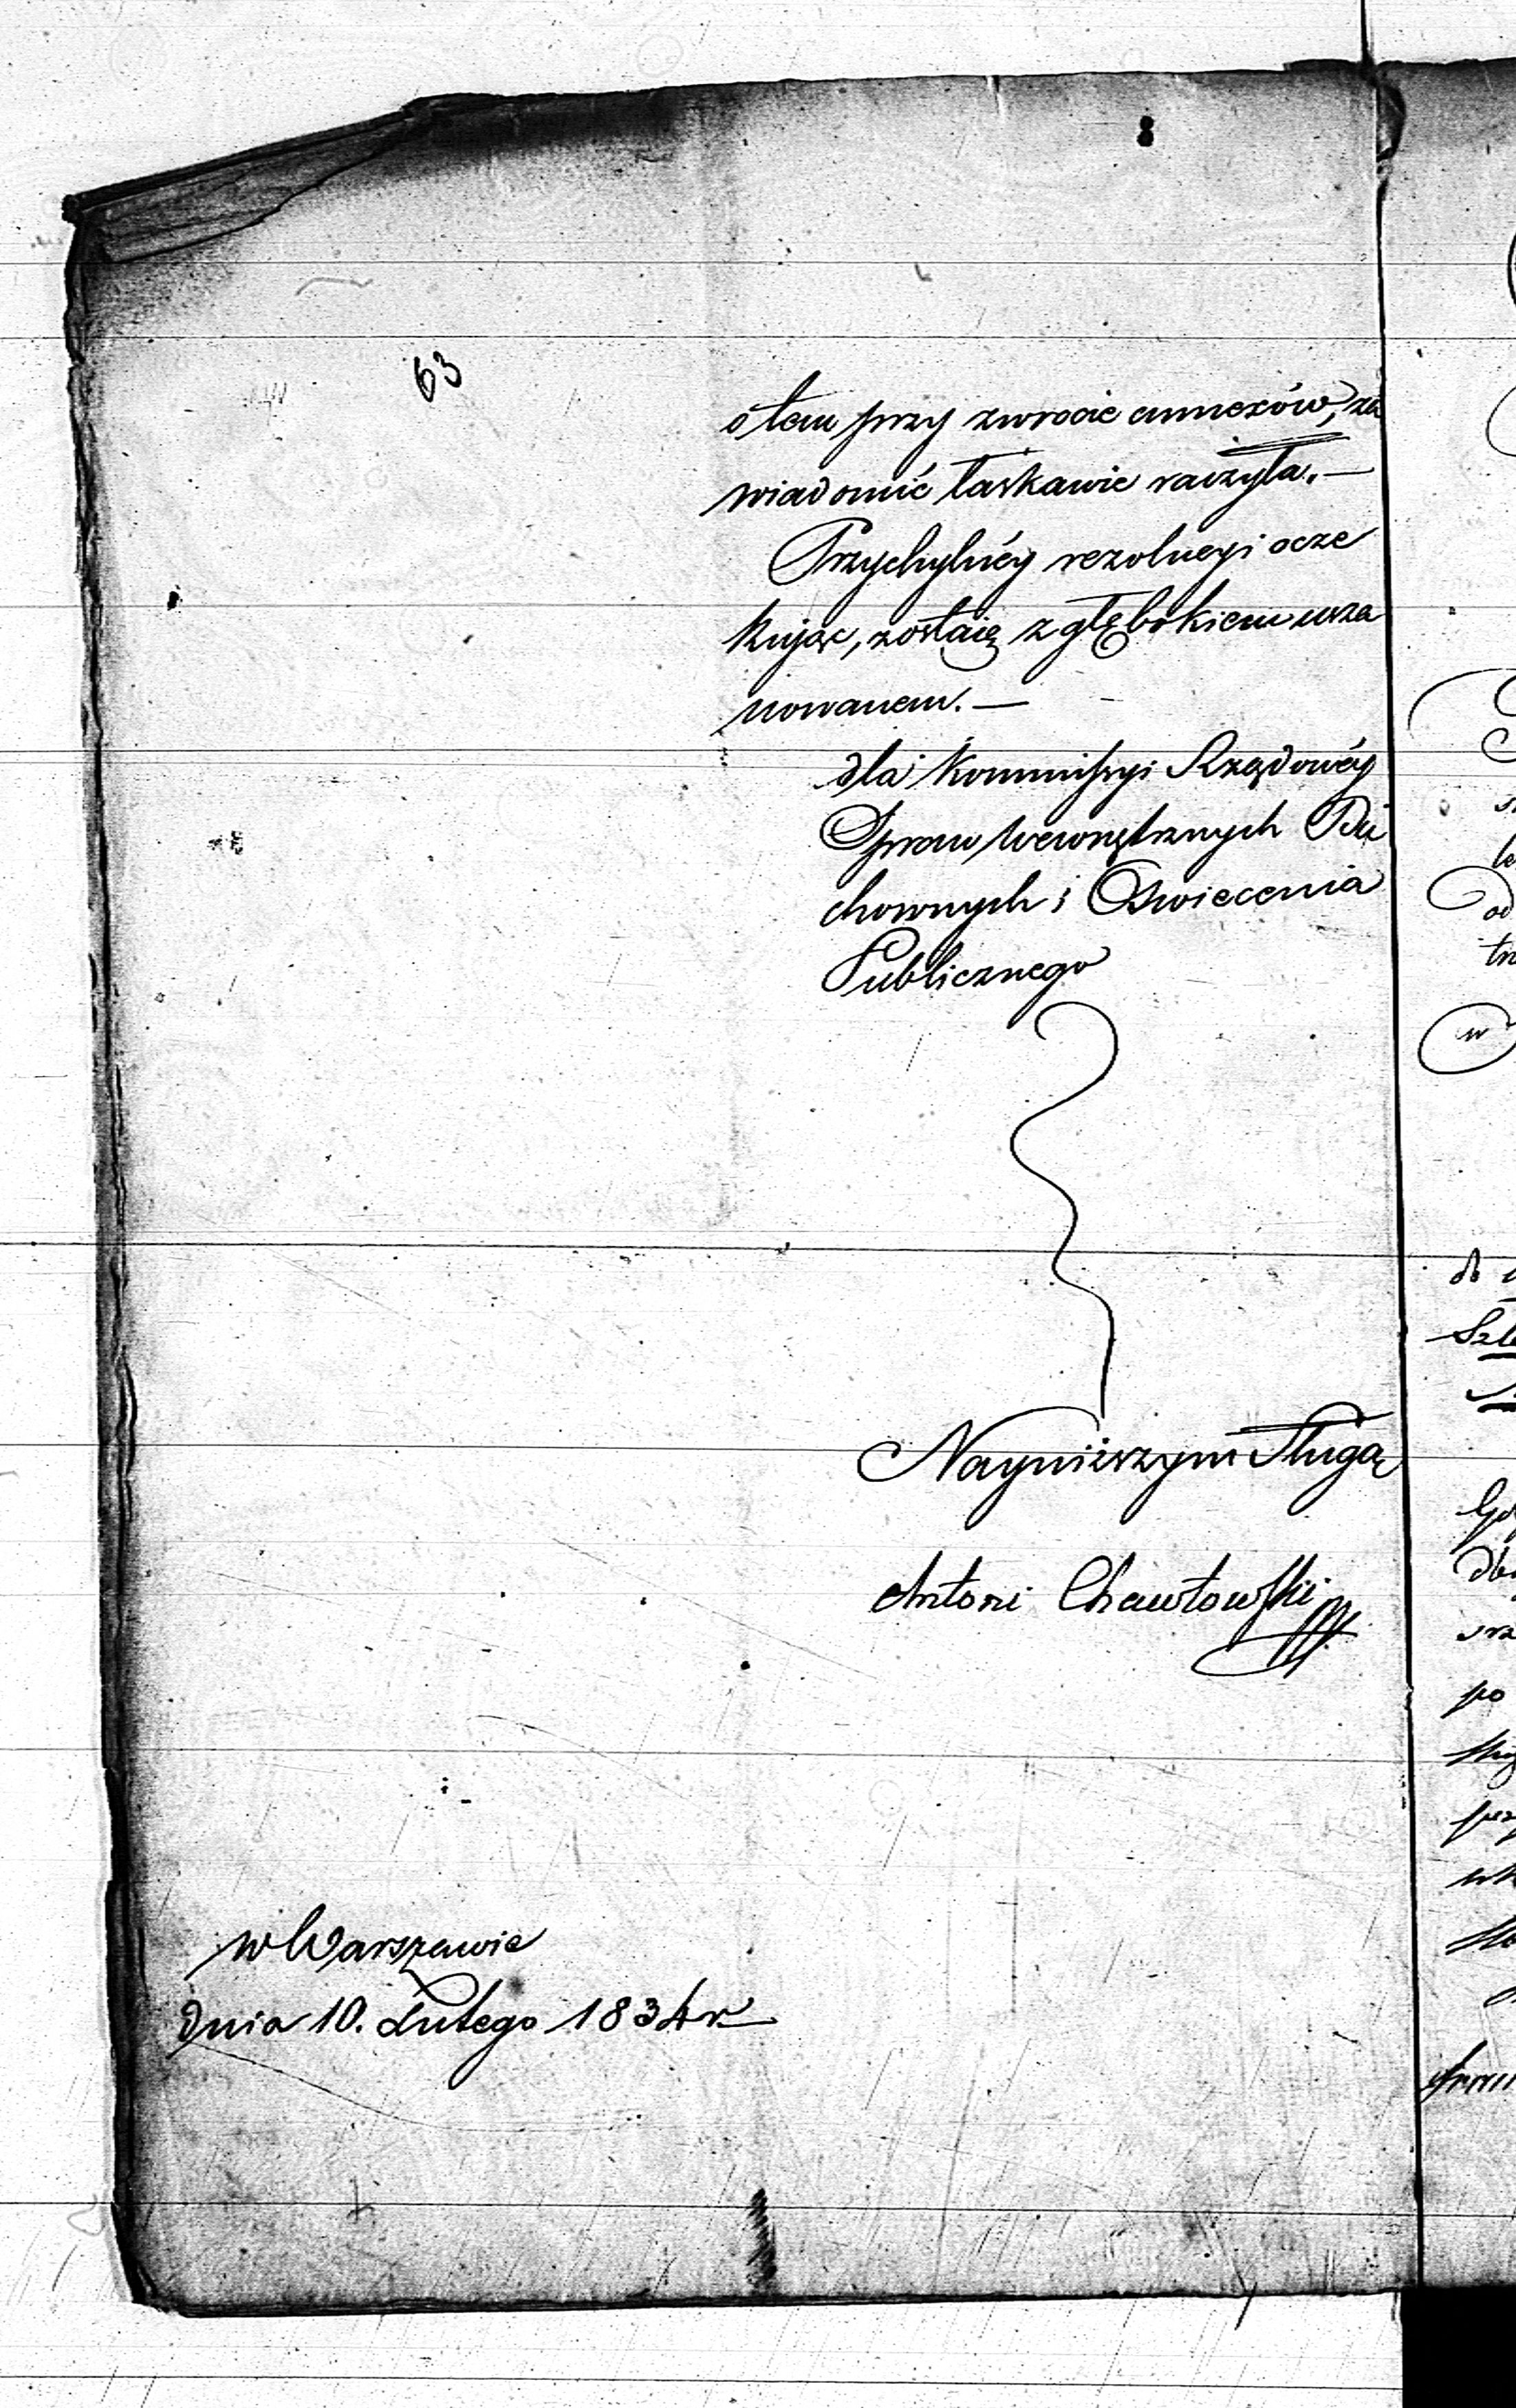 63
o tem przy zwrocie annexów, za
wiadomić łaskawie raczyła. —
Przychylnéy rezolucyi ocze
kując, zostaię z głębokiem usza
nowanem. —
dla Kommissyi Rządowéy
Spraw Wewnętrznych Du
chownych i Oswiecenia
Publicznego
Nayniższym Sługą
Antoni
w Warszawie
dnia 10. Lutego 1834 r